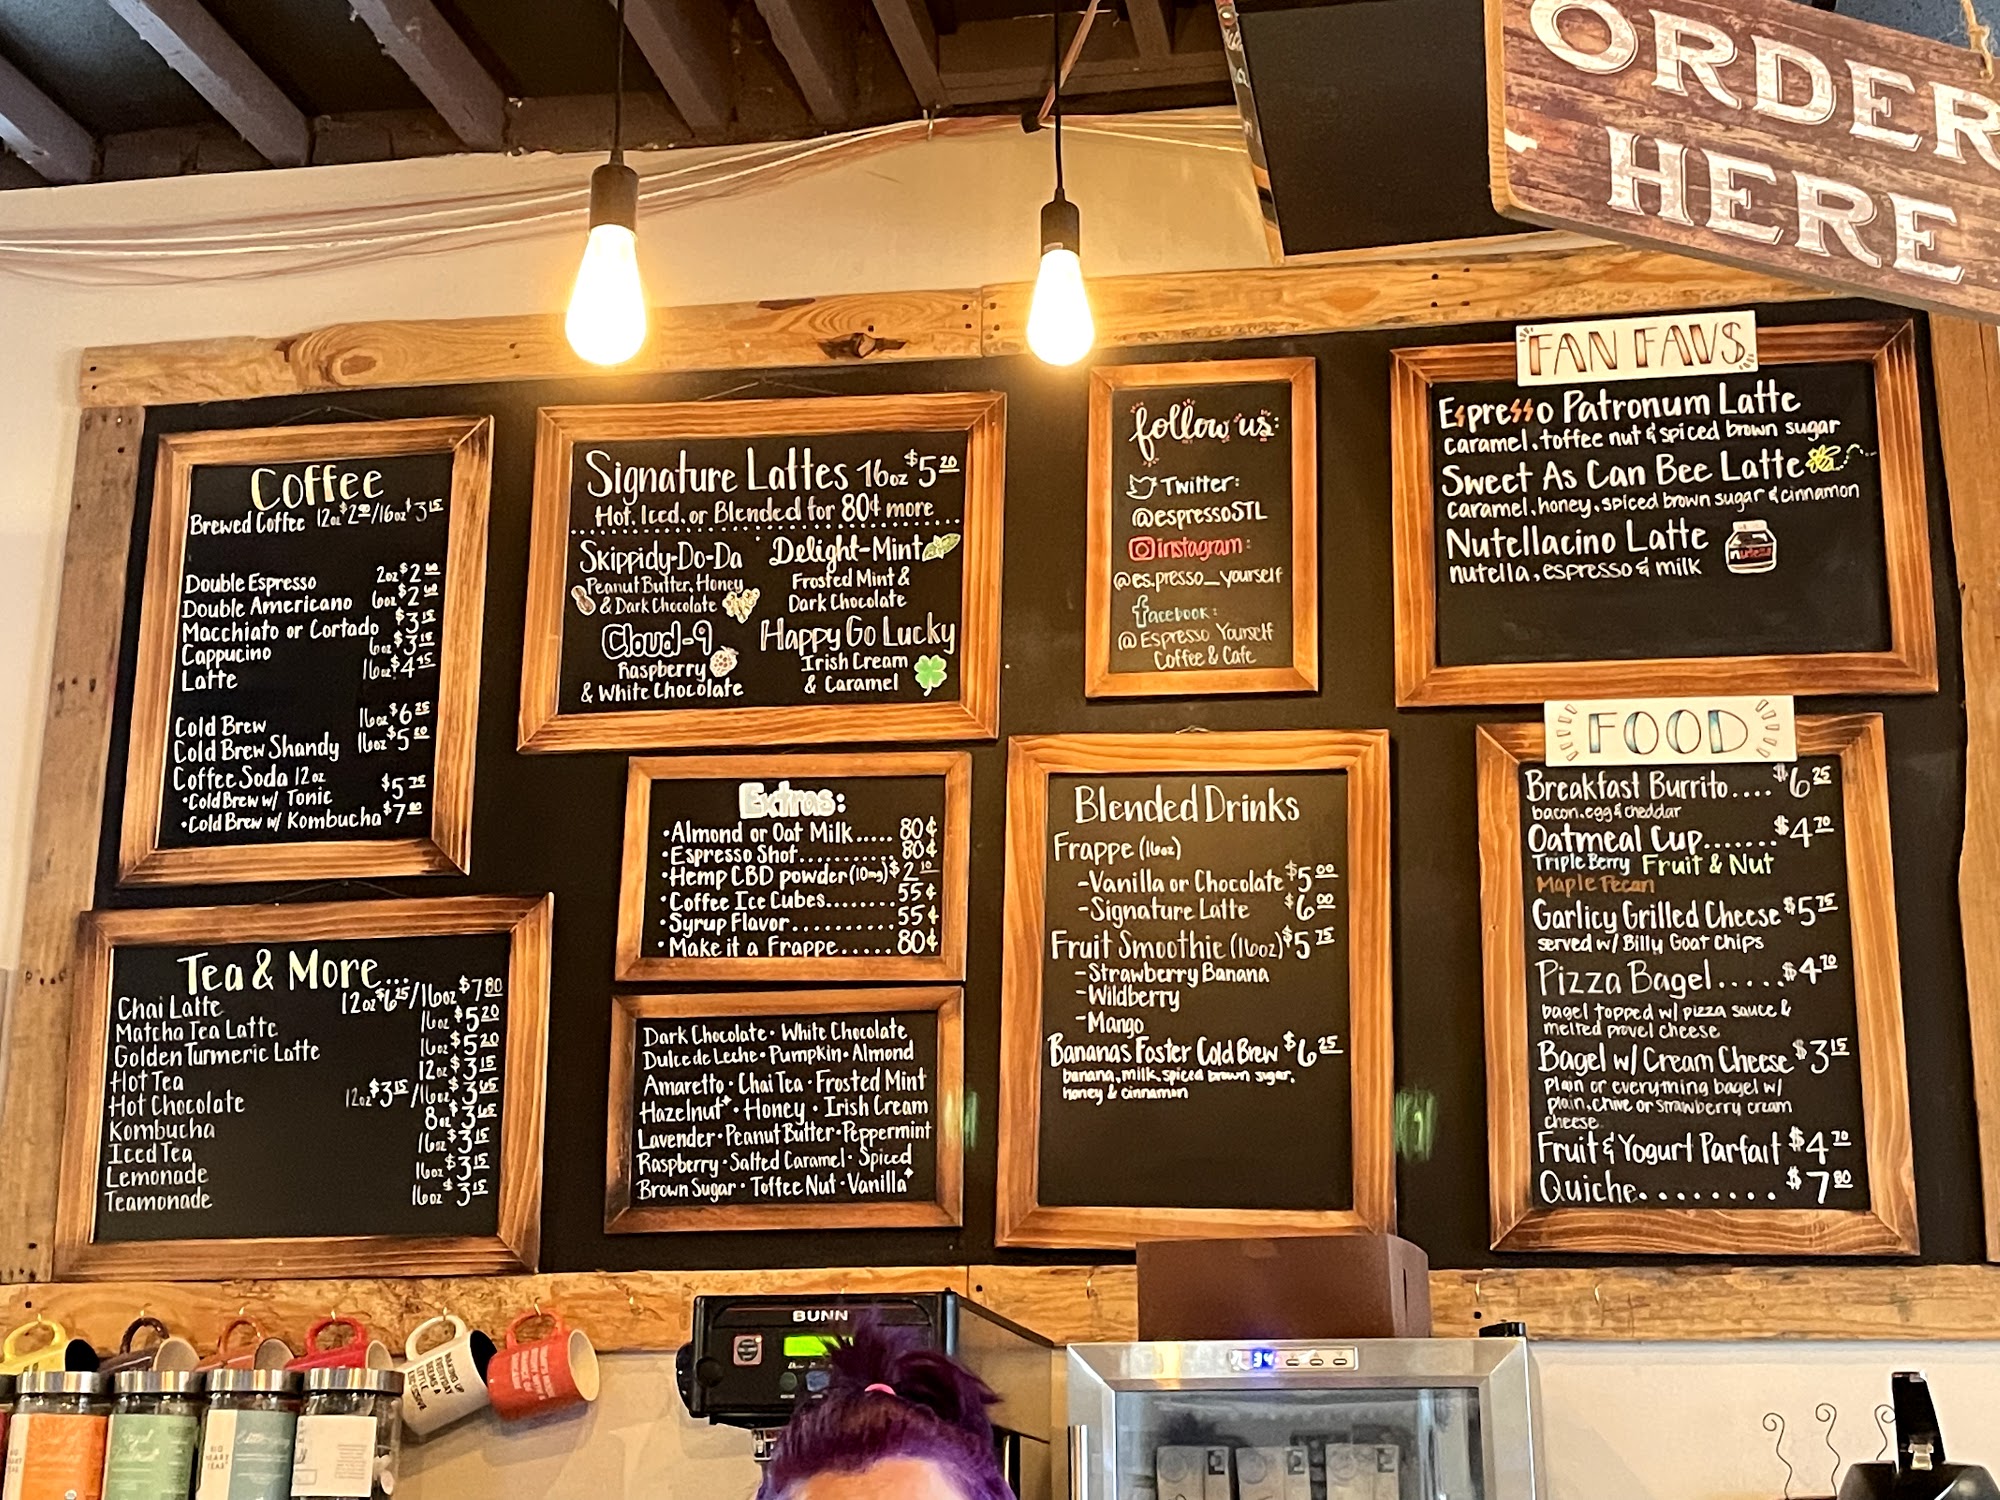 ORDER
HERE
Coffee
Brewed Coffee 12oz $2.90/16oz $3.15
Double Espresso 2oz $2.60
Double Americano 6oz $2.60
Macchiato or Cortado $3.15
Cappucino 6oz $3.15
Latte 16oz $4.45
Cold Brew 16oz $6.25
Cold Brew Shandy 16oz $5.80
Coffee Soda 12oz
•Cold Brew w/ Tonic $5.75
•Cold Brew w/ Kombucha $7.80
Tea & More...
Chai Latte 12oz $6.25/16oz $7.80
Matcha Tea Latte 16oz $5.20
Golden Turmeric Latte 16oz $5.20
Hot Tea 12oz $3.15
Hot Chocolate 12oz $3.15/16oz $3.65
Kombucha 8oz $3.65
Iced Tea 16oz $3.15
Lemonade 16oz $3.15
Teamonade 16oz $3.15
Signature Lattes 16oz $5.20
Hot, Iced, or Blended for 80¢ more
Skippidy-Do-Da
Peanut Butter, Honey
& Dark Chocolate
Delight-Mint
Frosted Mint &
Dark Chocolate
Cloud-9
Raspberry
& White Chocolate
Happy Go Lucky
Irish Cream
& Caramel
Extras:
•Almond or Oat Milk..... 80¢
•Espresso Shot.......... 80¢
•Hemp CBD powder (10mg) $2.10
•Coffee Ice Cubes........ 55¢
•Syrup Flavor........... 55¢
•Make it a Frappe..... 80¢
Dark Chocolate • White Chocolate
Dulce de Leche • Pumpkin • Almond
Amaretto • Chai Tea • Frosted Mint
Hazelnut+ • Honey • Irish Cream
Lavender • Peanut Butter • Peppermint
Raspberry • Salted Caramel • Spiced
Brown Sugar • Toffee Nut • Vanilla+
follow us:
Twitter:
@espressoSTL
instagram:
@es.presso_yourself
facebook:
@ Espresso Yourself
Coffee & Cafe
Blended Drinks
Frappe (16oz)
-Vanilla or Chocolate $5.00
-Signature Latte $6.00
Fruit Smoothie (16oz) $5.75
-Strawberry Banana
-Wildberry
-Mango
Bananas Foster Cold Brew $6.25
banana, milk, spiced brown sugar,
honey & cinnamon
FAN FAVS
Espresso Patronum Latte
caramel, toffee nut & spiced brown sugar
Sweet As Can Bee Latte
caramel, honey, spiced brown sugar & cinnamon
Nutellacino Latte
nutella, espresso & milk
FOOD
Breakfast Burrito.... $6.25
bacon, egg & cheddar
Oatmeal Cup....... $4.70
Triple Berry Fruit & Nut
Maple Pecan
Garlicy Grilled Cheese $5.75
served w/ Billy Goat Chips
Pizza Bagel..... $4.70
bagel topped w/ pizza sauce &
melted provel cheese
Bagel w/ Cream Cheese $3.15
plain or everything bagel w/
plain, chive or strawberry cream
cheese.
Fruit & Yogurt Parfait $4.70
Quiche........ $7.80
BUNN
34
WAKING UP
EVERYDAY
SEEMS A
LITTLE
EXCESSIVE